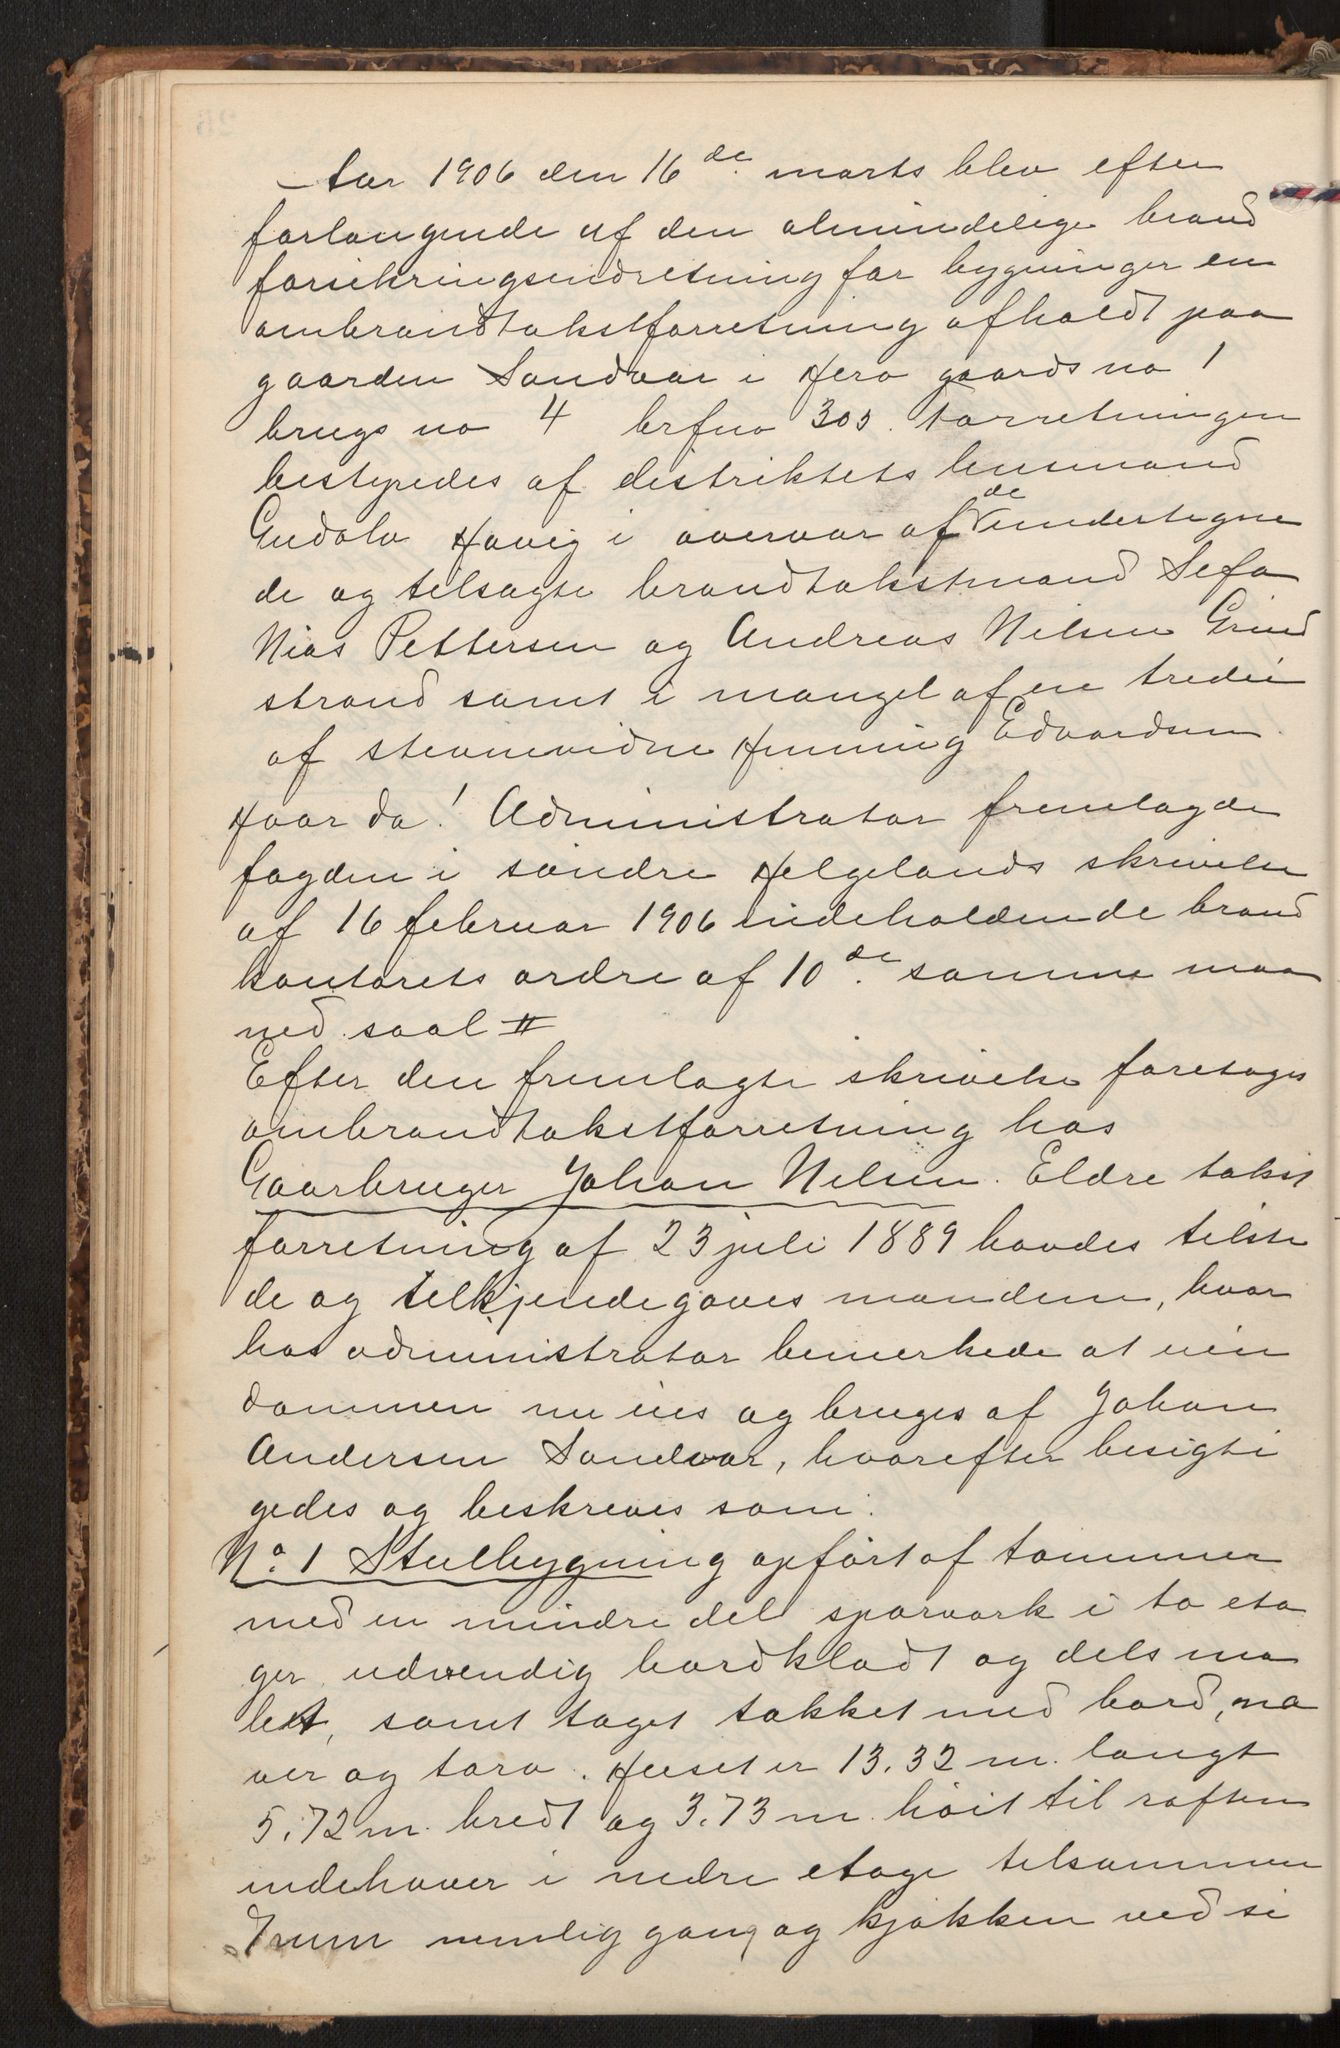 Aar 1906 den 16de. marts blev efter
forlangende af den almindelige brand
forsikringsindretning for bygninger en
ombrandtakstforretning afholdt paa
gaarden Sandvær i Herø gaards no 1
brugs no 4 brfno 305. Forretningen
bestyredes af distriktets lensmand
Gudolv Havig i overvær af de undertegne
de og tilsagte brandtakstmænd Sefa
Nias Pettersen og Andreas Nilsen Grind
strand samt i mangel af en tredie
af stevnevidne Henning Edvardsen
Hvor da! Administrator fremlagde
fogden i søndre Helgelands skrivelse
af 16 februar 1906 indeholdende brand
kontorets ordre af 10de. samme maa
ned saal #
Efter den fremlagte skrivelse foretoges
ombrandtakstforretning hos
Gaarbruger Johan Nilsen. Eldre takst
forretning af 23 juli 1889 havdes tilste
de og tilkjendegaves mændene, hvor
hos administrator bemerkede at eien
dommen nu eies og bruges af Johan
Andersen Sandvær, hvorefter besigti
gedes og beskreves som:
No. 1 Stuebygning opført af tømmer
med en mindre del sparværk i to eta
ger udvendig bordklædt og dels ma
let, samt taget tækket med bord, næ
ver og torv. Huset er 13.32 m. langt
5.72 m. bredt og 3.73 m. høit til raften
indehaver i nedre etage tilsammen
7 rum nemlig gang og kjøkken ved si